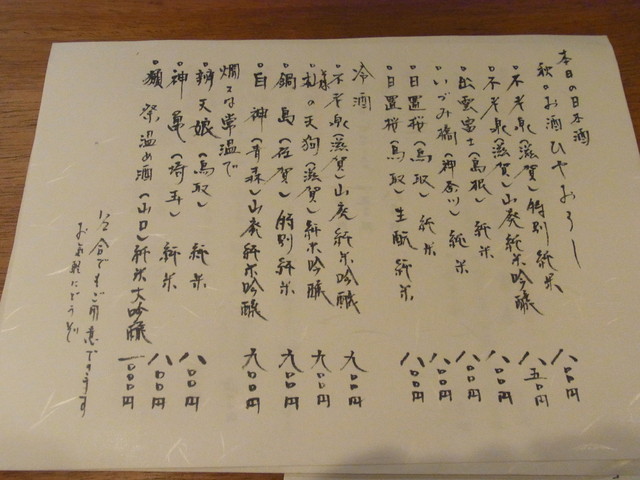 本日の日本酒
秋のお酒ひやおろし
・不老泉（滋賀）特別純米 八〇〇円
・不老泉（滋賀）山廃純米吟醸 八五〇円
・出雲富士（島根）純米 八〇〇円
・いづみ橋（神奈川）純米 八〇〇円
・日置桜（鳥取）純米 八〇〇円
・日置桜（鳥取）生酛純米 八〇〇円
冷酒
・不老泉（滋賀）山廃純米吟醸 九〇〇円
・天狗（滋賀）純米吟醸 九〇〇円
・鍋島（佐賀）特別純米 九〇〇円
・白神（青森）山廃純米吟醸 九〇〇円
燗又は常温で
・辨天娘（鳥取）純米 八〇〇円
・神亀（埼玉）純米 八〇〇円
・獺祭温め酒（山口）純米大吟醸 一〇〇〇円
1/2合でもご用意できます
お気軽にどうぞ